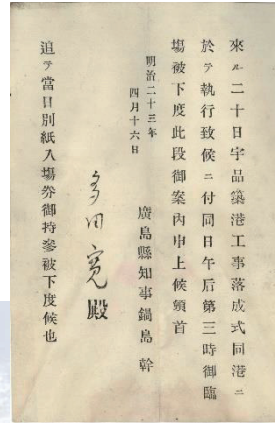 來ル二十日宇品築港工事落成式同港ニ
於テ執行致候ニ付同日午后第三時御臨
塲被下度此段御案內申上候頓首
明治二十三年
四月十六日
廣島縣知事鍋島幹
多田寛殿
追テ當日別紙入塲券御持參被下度候也